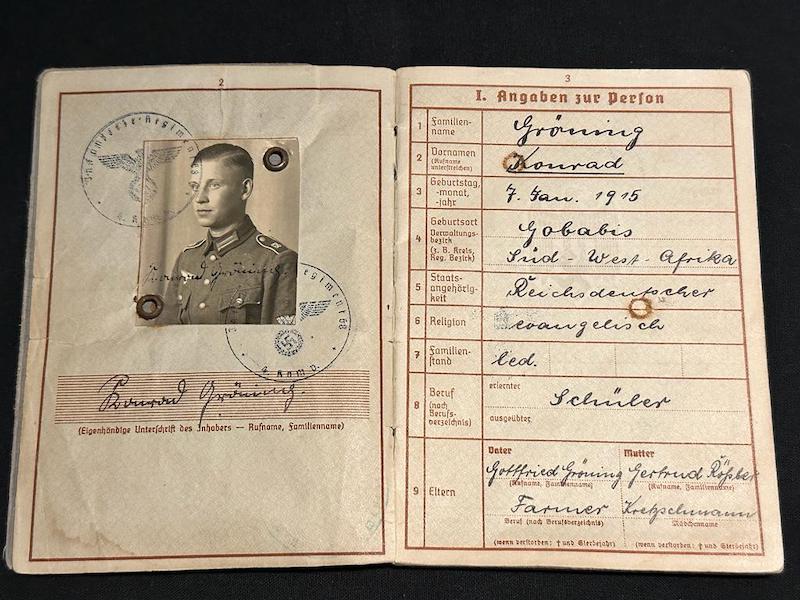 2
Infanterie-Regiment 68
4. Komp.
Konrad Gröning.
Regiment 68
4. Komp.
Konrad Gröning.
(Eigenhändige Unterschrift des Inhabers — Rufname, Familienname)
3
I. Angaben zur Person
1 Familien-
name
Gröning
2 Vornamen
(Rufname
unterstreichen)
Konrad
3 Geburtstag,
-monat,
-jahr
7. Jan. 1915
4 Geburtsort
Verwaltungs-
bezirk
(z. B. Kreis,
Reg. Bezirk)
Gobabis
Süd-West-Afrika
5 Staats-
angehörig-
keit
Reichsdeutscher
6 Religion
evangelisch
7 Familien-
stand
led.
8 Beruf
(nach
Berufs-
verzeichnis)
erlernter
Schüler
ausgeübter
9 Eltern
Vater Mutter
Gottfried Gröning Gertrud
(Rufname, Familienname) (Rufname, Familienname)
Farmer Kretzschmann
Beruf (nach Berufsverzeichnis) Mädchenname
(wenn verstorben: † und Sterbejahr) (wenn verstorben: † und Sterbejahr)